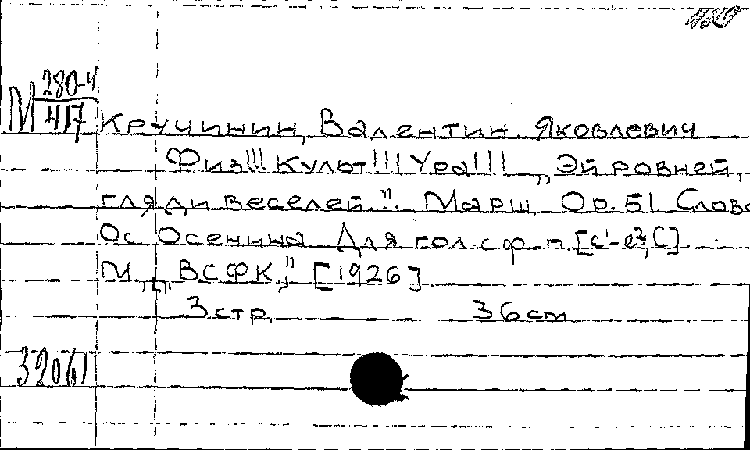 М 280-4
417
Кручинин, Валентин Яковлевич
Физ!!! Культ!!! Ура!!! „Эй ровней,
гляди веселей". Марш. Ор. 51 Слова
Ос Осенина Для гол. с ф-п [c¹-e²; C]
М., „ВСФК," [1926]
3 стр. 36 cm
32061